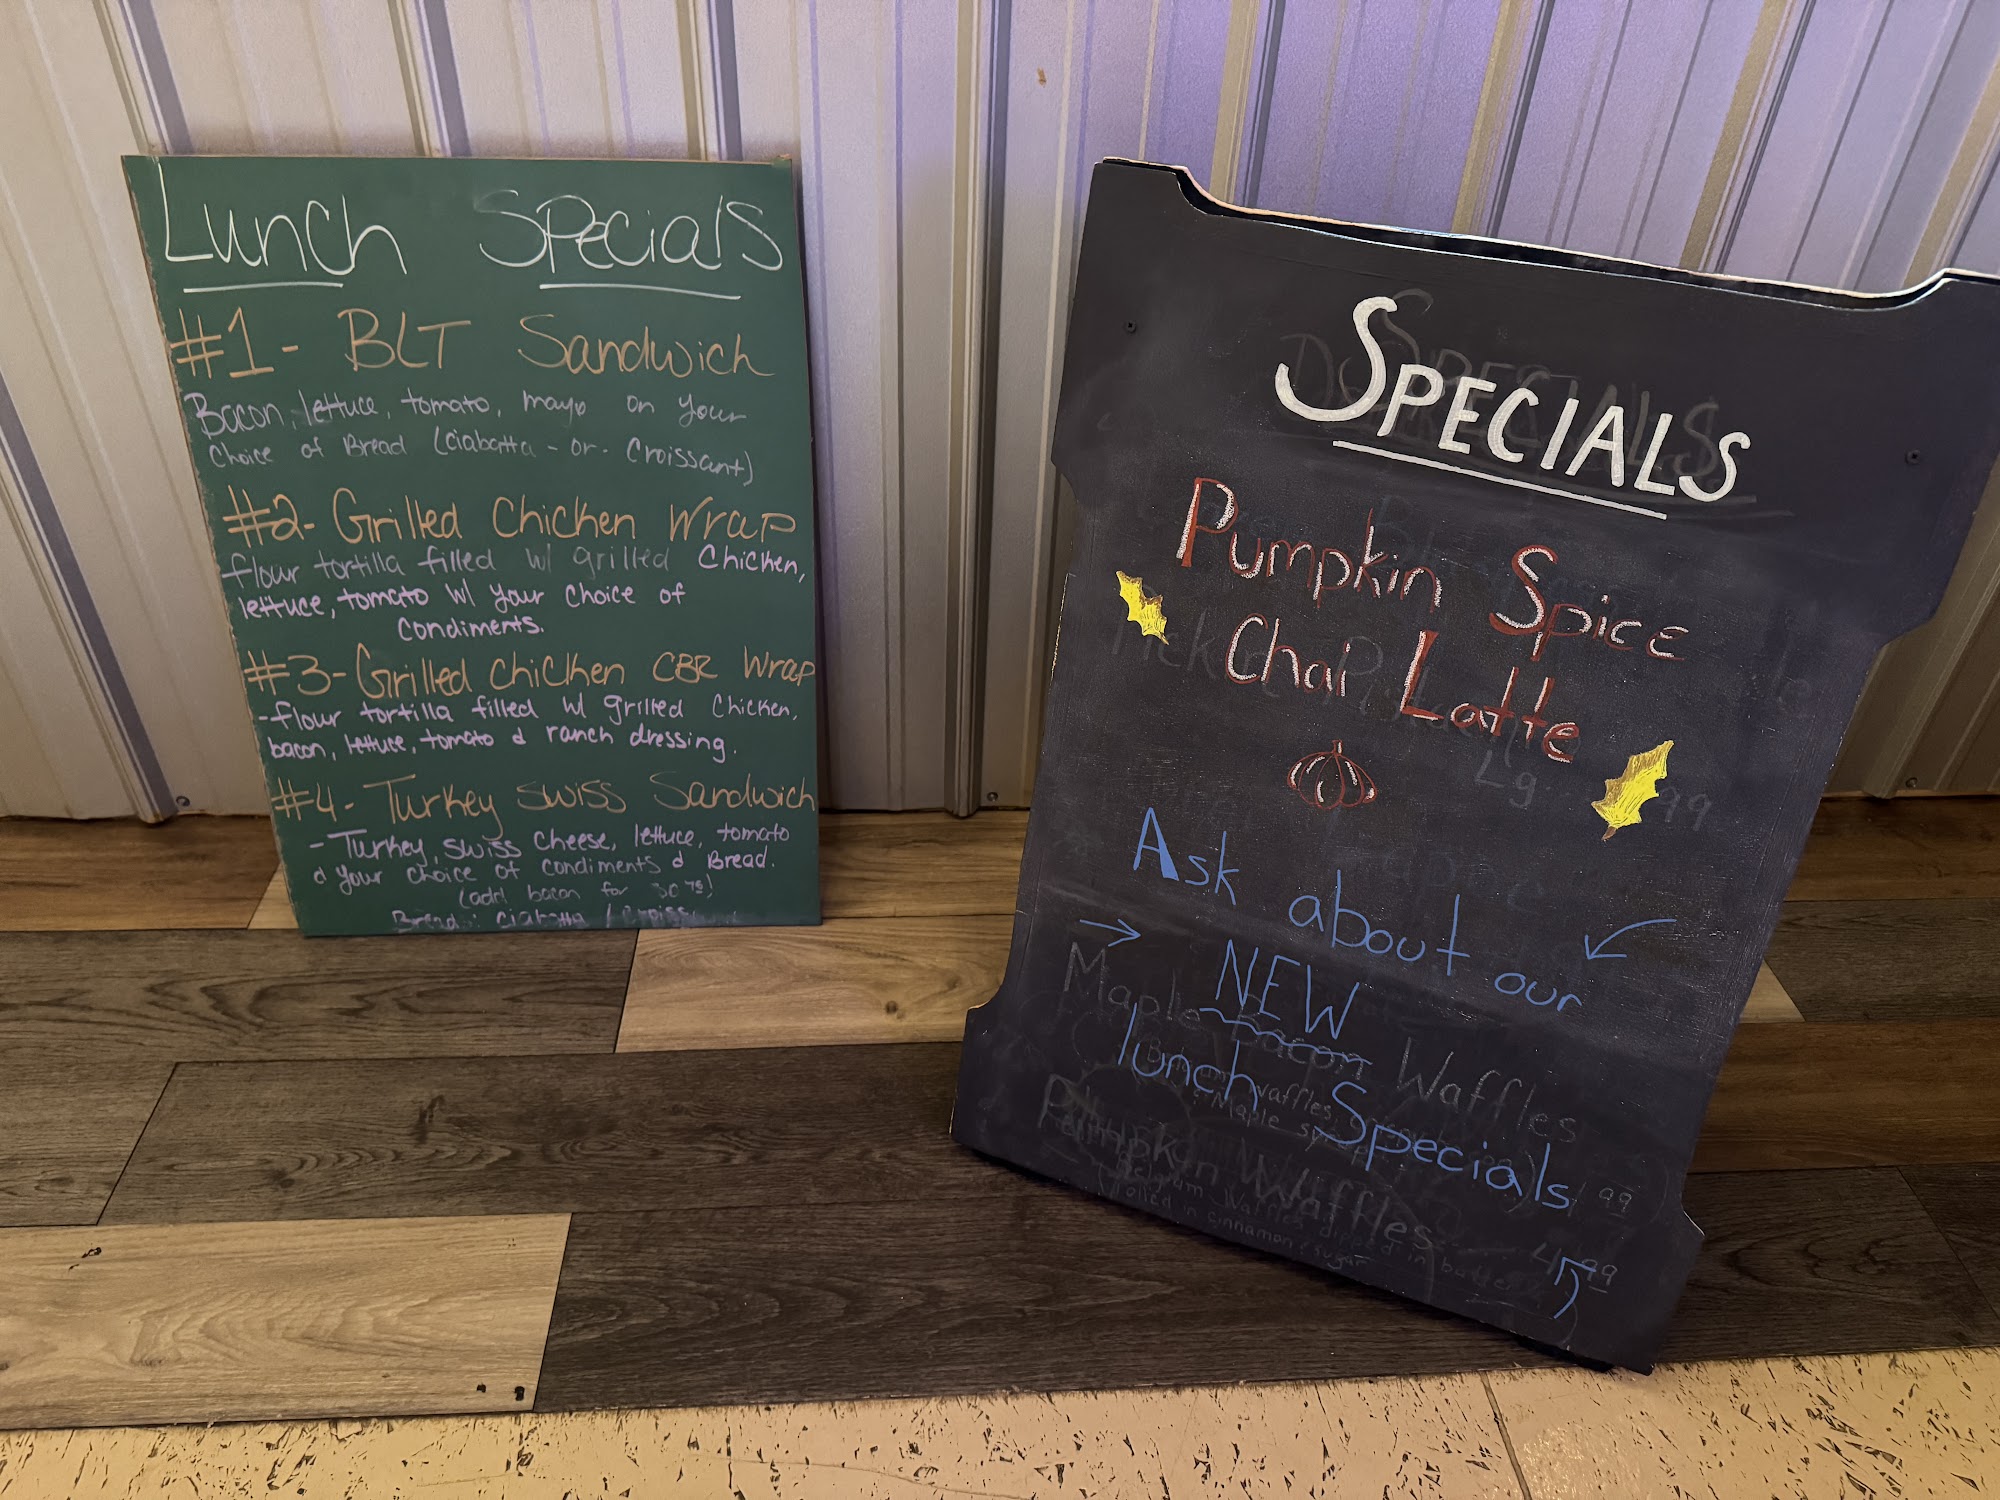 Lunch Specials
#1 - BLT Sandwich
Bacon, lettuce, tomato, mayo on your
Choice of Bread (Ciabatta - or - Croissant)
#2 - Grilled Chicken Wrap
flour tortilla filled w/ grilled Chicken,
lettuce, tomato w/ your choice of
Condiments.
#3 - Grilled Chicken CBR Wrap
- flour tortilla filled w/ grilled Chicken,
bacon, lettuce, tomato & ranch dressing.
#4 - Turkey Swiss Sandwich
- Turkey, swiss cheese, lettuce, tomato
& your choice of condiments & Bread.
(add bacon for
Bread: Ciabatta /
SPECIALS
Pumpkin Spice
Chai Latte
Lg... 99
Ask about our
NEW
lunch Specials
Maple Bacon Waffles
Belgium waffles
& Maple syrup
Pumpkin Waffles
Belgium Waffles dipped in butter &
rolled in cinnamon sugar